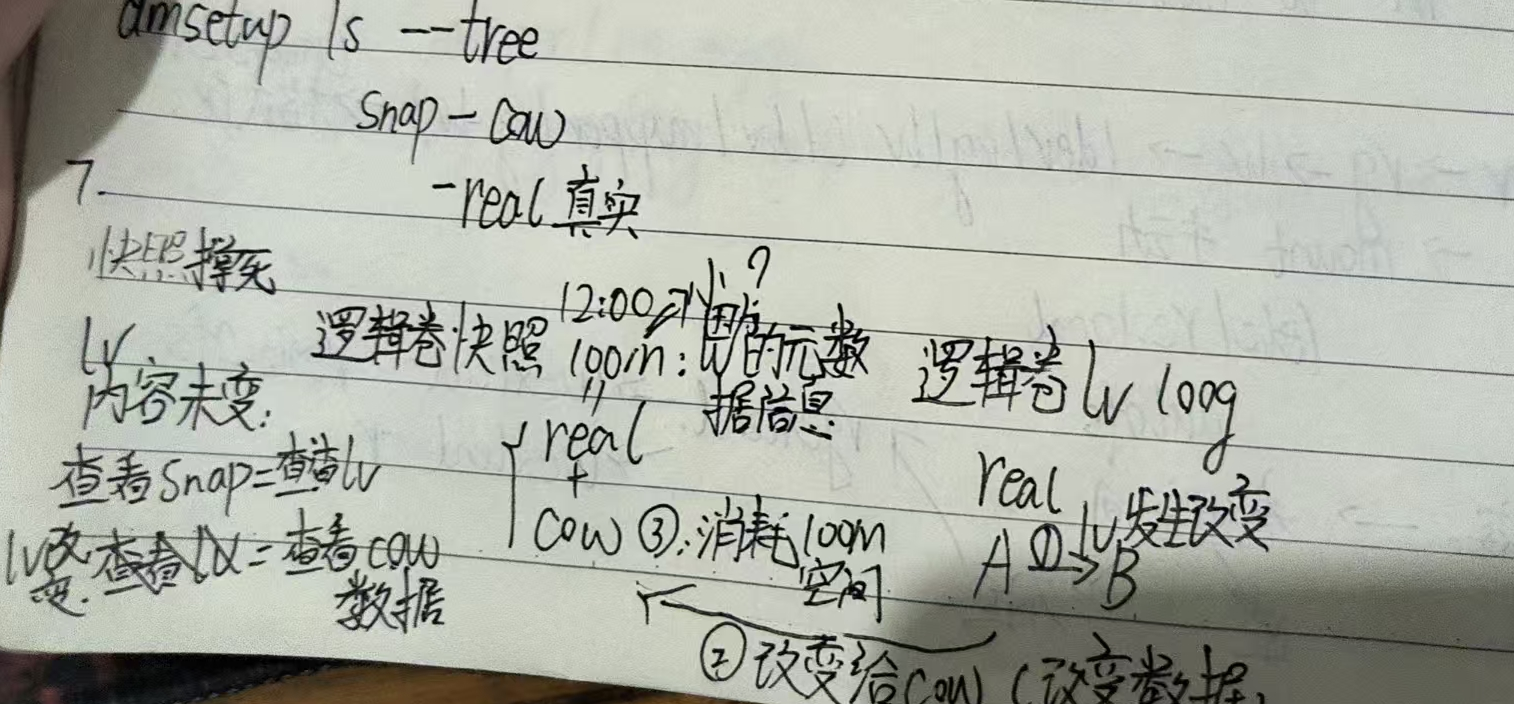 dmsetup ls --tree
snap-cow
7.
-real 真实
快照撑死
?
12:00
逻辑卷快照 100m: 的元数
据信息
逻辑卷 lv 100g
lv
内容未变:
real
+
cow ③:消耗100m
空间
查看snap=查看lv
lv改变.查看=查看cow
数据
real
lv发生改变
A ①→ B
②改变给cow (改变数据